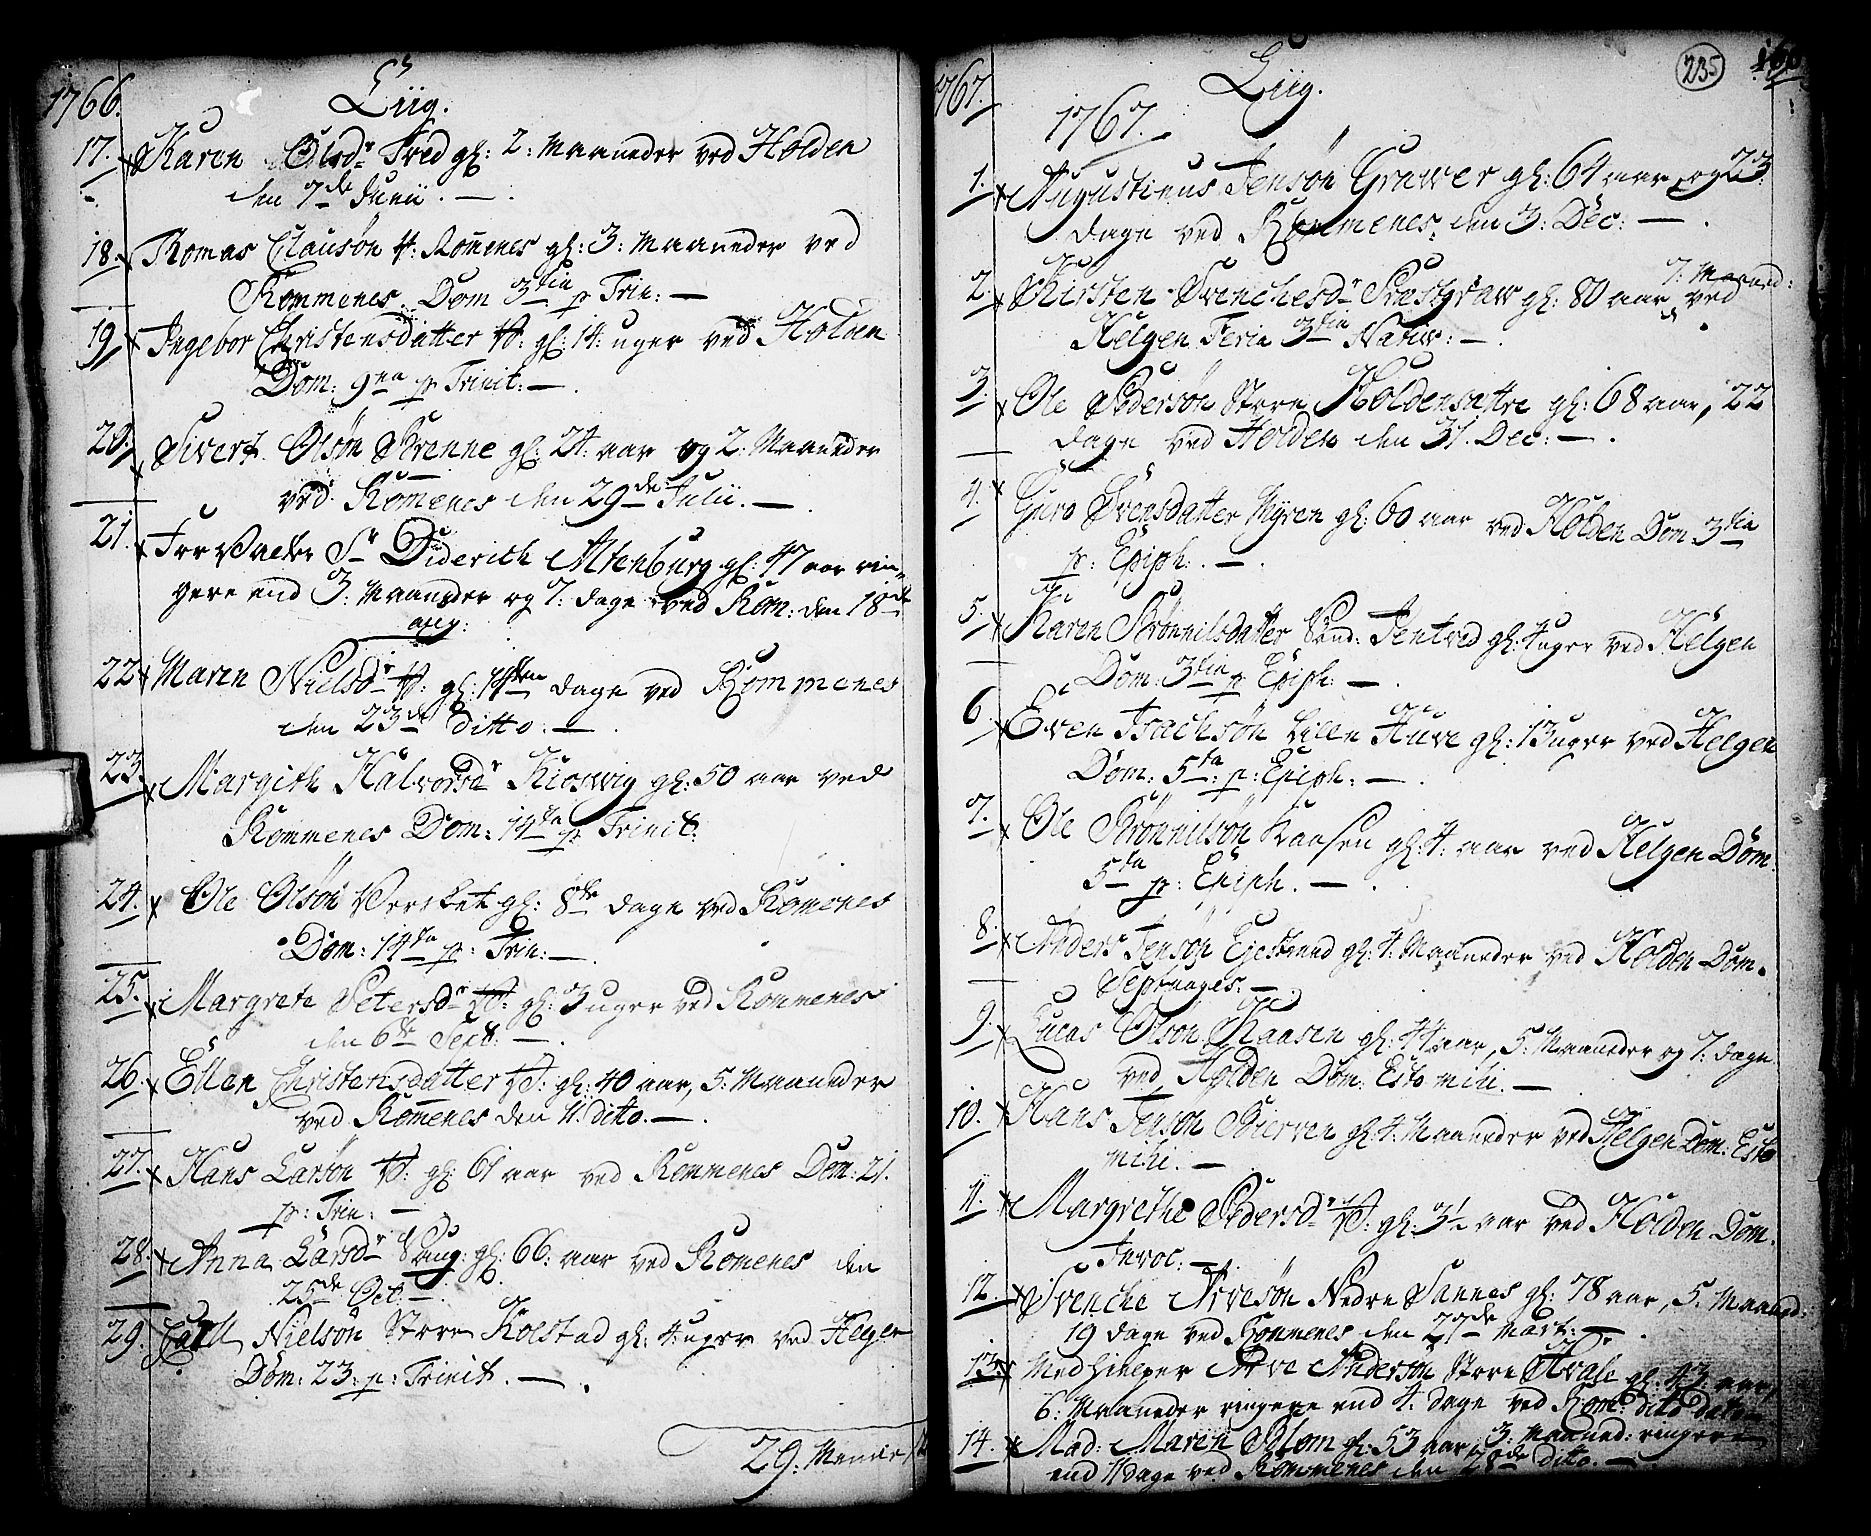 1766.
Liig.
17. Karen Olsdr Tred gl: 2: Maaneder ved Holden
den 7de Junii. —
18. Tomas Clausøn V. Romenes gl: 3: Maaneder ved
Rommenes Dom 3tia p Trin: —
19. Ingebor Christensdatter V: gl: 14: uger ved Holden
Dom: 9na p Trinit: —
20. Sivert Olsøn Brenne gl: 24: aar og 2: Maaneder
ved Romenes den 29de Julii. —
21. Forvalter Sr Diderich Altenburg gl: 47 aar rin-
gere end 3: Maaneder og 7: dage ved Rom: den 18de
aug:
22. Maren Nielsdr V: gl: 14ten dage ved Rommenes
den 23de ditto. —
23. Margith Halvorsdr Kiosvig gl: 50 aar ved
Rommenes Dom: 14ta p Trinit:
24. Ole Olsøn Verket gl: 8te dage ved Romenes
Dom: 14ta p: Trin: —
25. Margrete Petersdr V: gl: 3 uger ved Rommenes
den 6te Sept: —
26. Ellen Christensdatter V: gl: 40 aar, 5: Maaneder
ved Romenes den 11. dito. —
27. Hans Larsøn V: gl: 61 aar ved Rommenes Dom: 21.
p: Trin: —
28. Anna Larsdr Saug: gl: 66: aar ved Romenes den
25de Oct: —
29. Carll Nielsøn Store Kolstad gl: 4: uger ved Helgen
Dom: 23: p: Trinit. —
29: Mennisk
1767.
Liig.
235
1767.
1. Augustinus Jensøn Grawer gl: 64 aar, og 23:
dage ved Rommenes, den 3: Dec: —
2. Kirsten Svenchesdr Præstgraw gl: 80 aar 7: Maaned: ved
Helgen Feria 3tia Nativ: —
3. Ole Pedersøn Store Holdensættre gl: 68 aar, 22
dage ved Holden den 31. Dec: —
4. Guro Svensdatter Myren gl: 60 aar ved Holden Dom 3tia
p: Epiph: —
5. Karen Brønnilsdatter Sønd: Jentved gl: 4 uger ved Helgen
Dom: 3tia p Epiph: —
6. Even Isachsøn Lille Huve gl: 13 uger ved Helgen
Dom: 5ta: p: Epiph: —
7. Ole Brønnilsøn Kaasen gl: 4: aar ved Helgen Dom:
5ta p: Epiph. —
8. Anders Jensøn Ejestrand gl: 4: Maaneder ved Holden Dom.
Septuages: —
9. Lucas Olsøn Kaasen gl: 44 aar, 5: Maaneder og 7: dage
ved Holden Dom: Esto mihi. —
10. Hans Jensøn Bierven gl: 4: Maaneder ved Helgen Dom: Esto
mihi. —
11. Margrethe Pedersdr V: gl: 3½ aar ved Holden Dom.
Invoc: —
12. Svenche Arvesøn Nedre Sannes gl: 78 aar, 5: Maaned:
19 dage ved Rommenes den 27de Mart: —
13. Medhielper Arve Andersøn Store Hvale gl: 43 aar,
6: Maaneder ringere end 4: dage ved Rom: dito dato
14. Mad: Maren Blom gl: 53 aar 3: Maaned: ringere
end 11 dage ved Rommenes den 28de dito. —